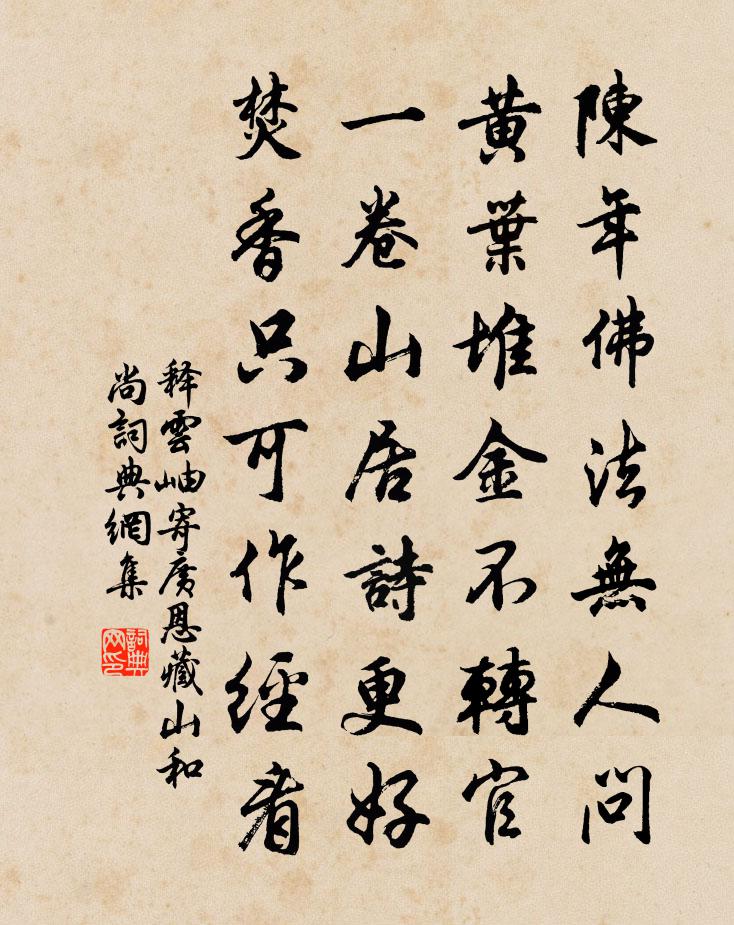 陳年佛法無人問
黃葉堆金不轉官
一卷山居詩更好
焚香只可作經看
释雲岫寄廣恩藏山和
尚詞典網集
詞典网印